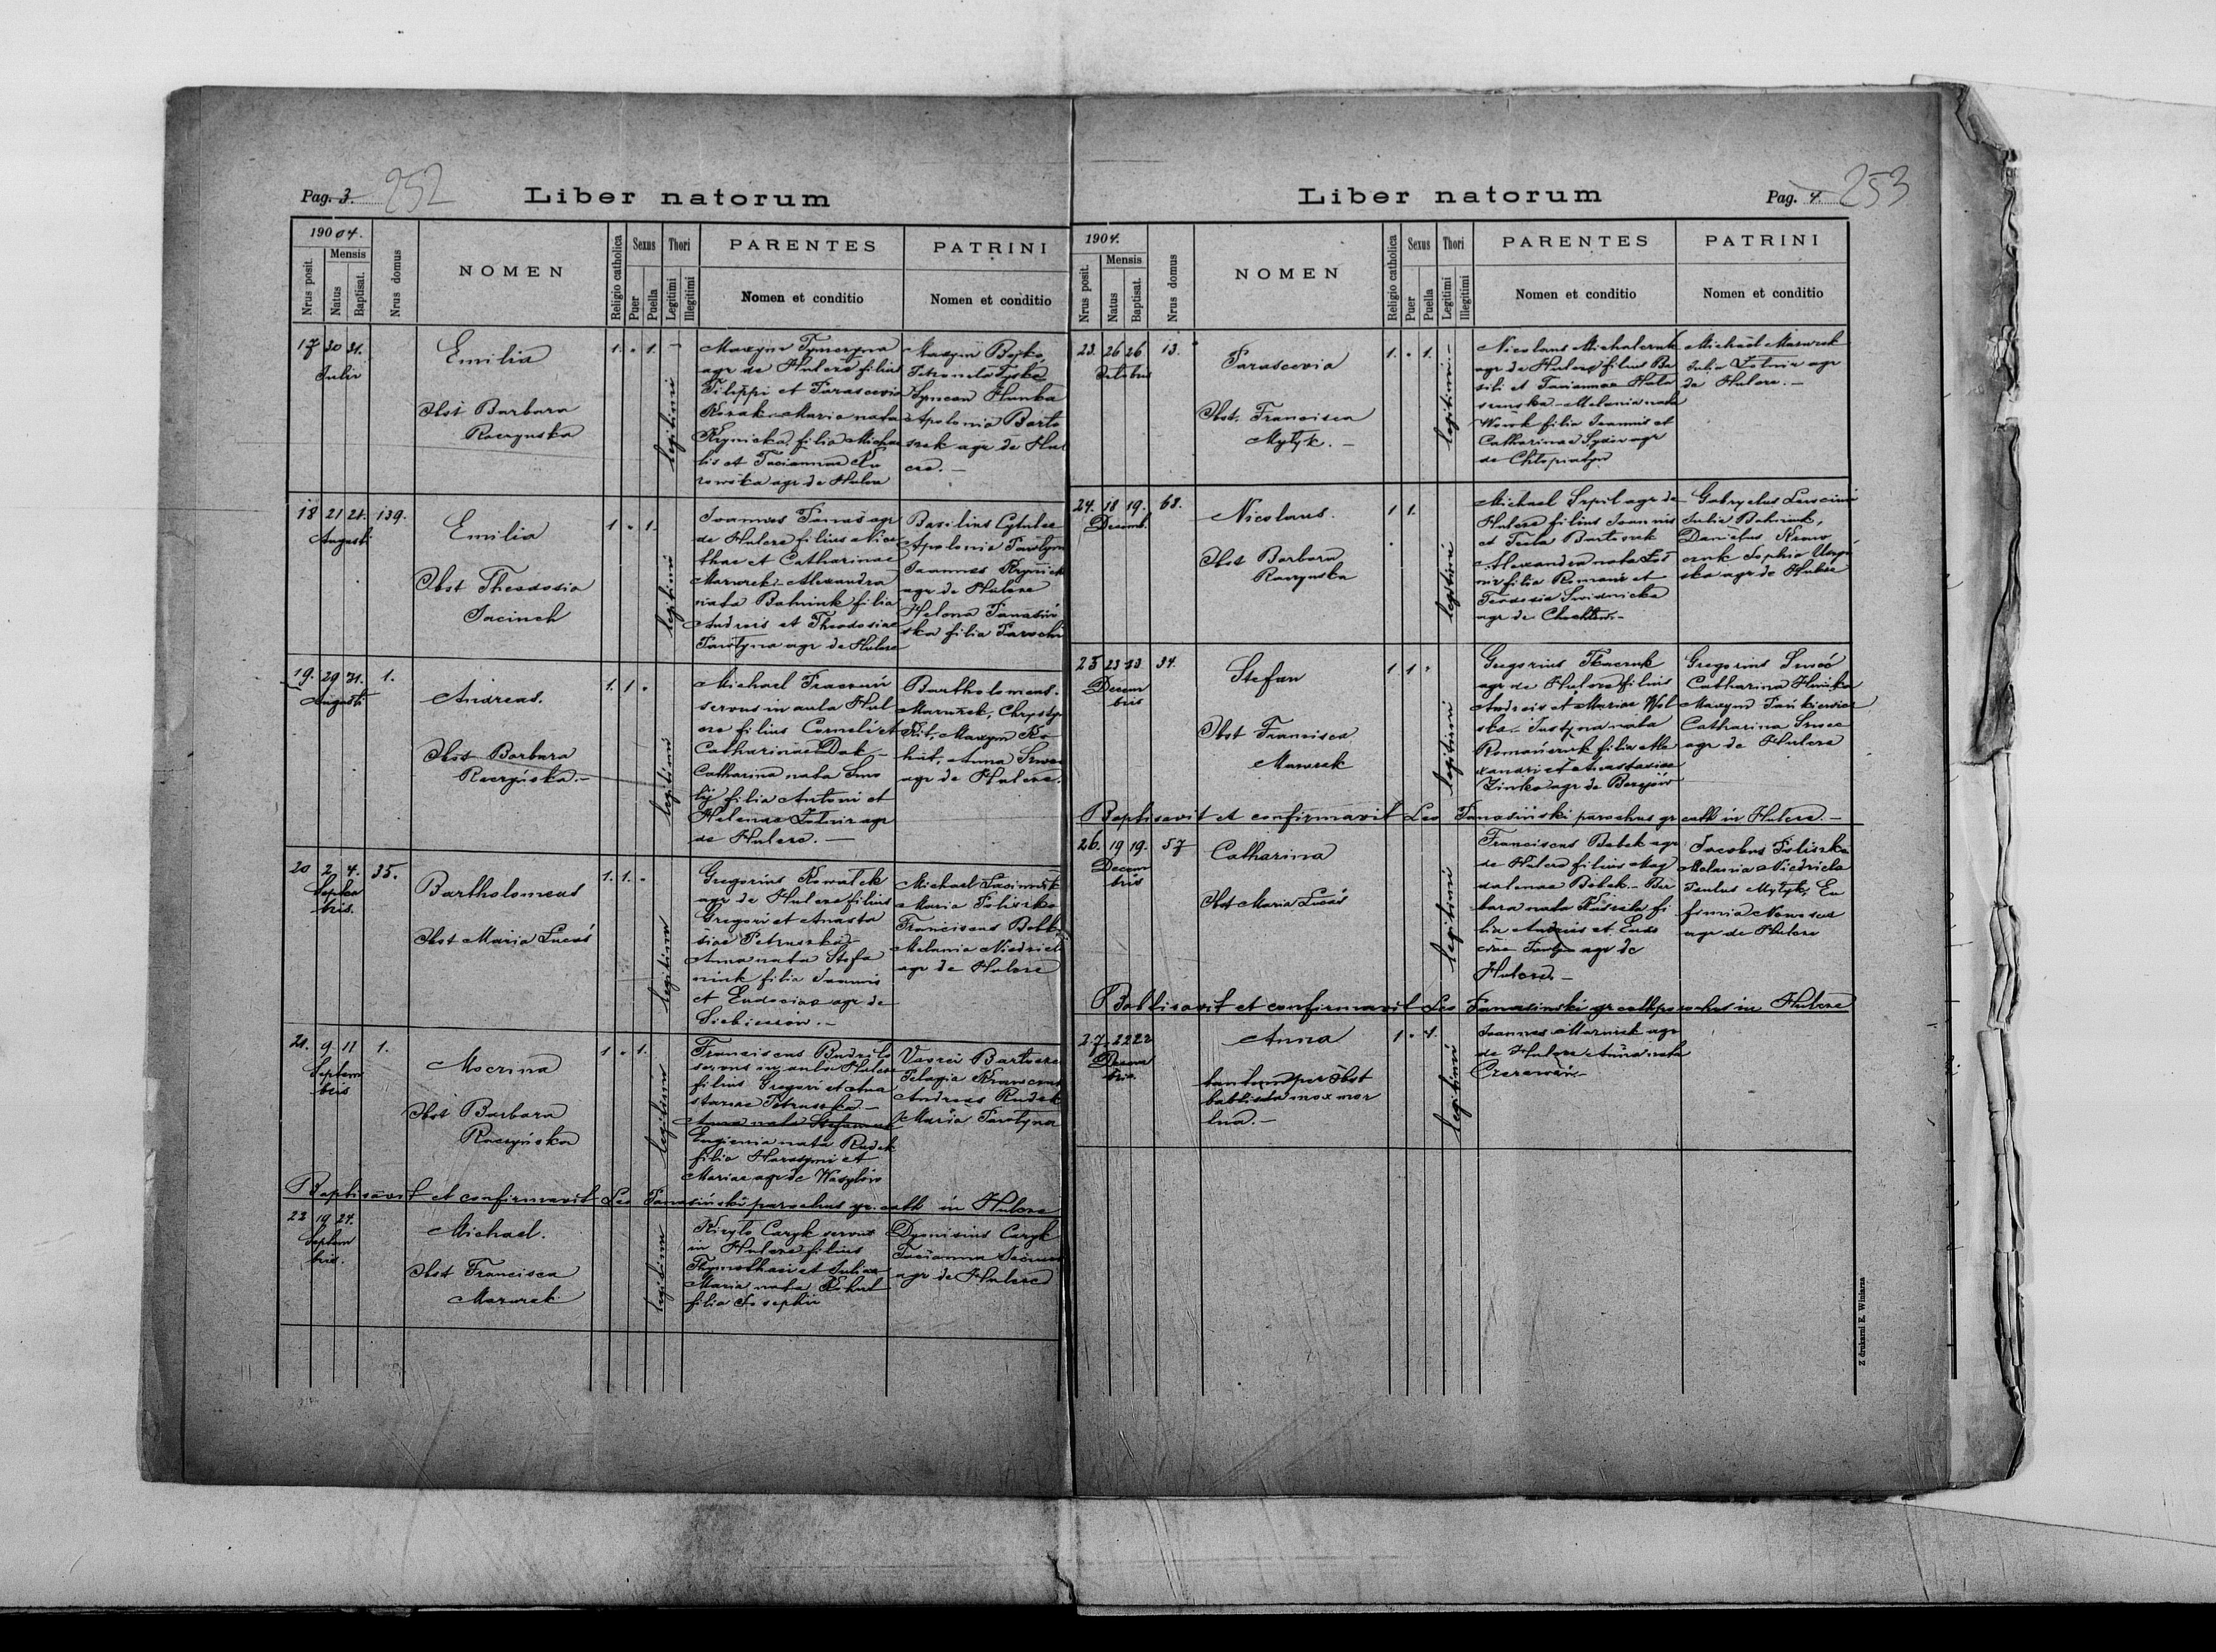 Pag. 3. 252
Liber natorum
1904.
Nrus posit.
Mensis
Natus
Baptisat.
Nrus domus
NOMEN
Religio catholica
Sexus
Puer
Puella
Thori
Legitimi
Illegitimi
PARENTES
Nomen et conditio
PATRINI
Nomen et conditio
17 30 31.
Julii
Emilia
Obst Barbara
Raczynska
1. . 1. -
legitimi
Maxym
agr de Hulcze filius
Filippi et Parascevia
Kozak Maria nata
Krynicka filia Micha
lis et Tacianna
agr de Hulcze
Maxym Bojko
Petronela
Symeon Hunka
Apolonia Barto
szek agr de Hul
cze. -
18 21 21. 139.
Augusti
Emilia
Obst Theodosia
Jacinch
1 . 1.
legitimi
Joannes Panas agr
de Hulcze filius Nice
thae et Catharinae
Mazurek - Alexandra
nata Bahniuk filia
Andreis et Theodosiae
Parotyna agr de Hulcze
Basilius
Apolonia Parotyna
Joannes Krynick
agr de Hulcze
Helena Tanasiń
ska filia Parochi
19. 29 31. 1.
Augusti
Andreas.
Obst Barbara
Raczyńska. -
1. 1 .
legitimi
Michael
servus in aula Hul
cze filius Cornelii et
Catharinae Dak -
Catharina nata Smo
lij filia Antoni et
Helenae Żołnir agr
de Hulcze. -
Bartholomeus
Mazurek,
Kit, Maxym Ko
hut, Anna
agr de Hulcze.
20 2. 4. 35.
Septem
bris.
Bartholomeus
Obst Maria Lucaś
1. 1. .
legitimi
Gregorius Kowalek
agr de Hulcze filius
Gregori et Anasta
siae Petruszka -
Anna nata Stefa
niuk filia Joannis
et Eudociae agr de
Siebieczów. -
Michael
Maria Poliszko
Franciscus Bebk
Melania Niedriel
agr de Hulcze
21. 9 11 1.
Septem
bris
Mocrina
Obst Barbara
Raczyńska
1 . 1.
legitimi
Franciscus Budzilo
servus in aula Hulcze
filius Gregori et Ana
stasiae Petruszka -
Anna nata Stefaniuk
Eugienia nata Rudek
filia Harasymi et
Mariae agr de Wasylów
Vavrii
Pelagia
Andreas Rudek
Maria Parotyna
Baptisavit et confirmavit Leo Tanasiński parochus gr. cath in Hulcze
22 19 24.
Septem
bris.
Michael.
Obst Francisca
Mazurek
legitimi
Kiryło Caryk servus
in Hulcze filius
Thymothaei et Juliae
Maria nata Kohut
filia Josephi
Dyonisius Caryk
Tacianna
agr de Hulcze
Liber natorum
Pag. 4. 253
1904.
Nrus posit.
Mensis
Natus
Baptisat.
Nrus domus
NOMEN
Religio catholica
Sexus
Puer
Puella
Thori
Legitimi
Illegitimi
PARENTES
Nomen et conditio
PATRINI
Nomen et conditio
23. 26 26 13.
Octobris
Parascevia
Obst. Francisca
Mytyk. -
1. . 1. -
legitimi
Nicolaus Michalczuk
agr de Hulcze filius Ba
sili et Tacianna
Melania nata
Wowk filia Joannis et
Catharinae agr
de Chłopiatyn
Michael Mazurek
Julia Żołnir agr
de Hulcze. -
24. 18 19. 68.
Decemb.
Nicolaus.
Obst Barbara
Raczynska
1 1.
legitimi
Michael Szpil agr de
Hulcze filius Joannis
et Tecla Bartoszek
Alexandra nata
filia Romani et
Teodosia Swidnicka
agr de
Gabryelus
Julia Bahniuk,
Danielus
Sophia
agr de Hulcze
25 23 23. 34.
Decem
bris
Stefan
Obst Francisca
Mazurek
1 1 .
legitimi
Gregorius Tkaczuk
agr de Hulcze filius
Andreis et Mariae Wol
ska - Justyna nata
Romańczuk filia Ale
xandri et Anastasiae
Zinko agr de
Gregorius
Catharina Hunka
Maxym
Catharina
agr de Hulcze
Baptisavit et confirmavit Leo Tanasiński parochus gr cath in Hulcze. -
26. 19 19. 57
Decem
bris
Catharina
Obst Maria Lucaś
legitimi
Franciscus Bebek agr
de Hulcze filius Mag
dalenae Bebek - Bar
bara nata fi
lia Andreis et Eudo
ciae agr de
Hulcze. -
Jacobus Poliszko
Melania Niedriela
Paulus Mytyk, Eu
fimia
agr de Hulcze
Babtisavit et confirmavit Leo Tanasinski gr cath parochus in Hulcze
27. 22 22
Decem
bris.
Anna
tantum per Obst
babtisata mox mor
tua. -
1 . 1.
legitimi
Joannes Mazurek agr
de Hulcze Anna nata
Z drukarni E. Winiarza